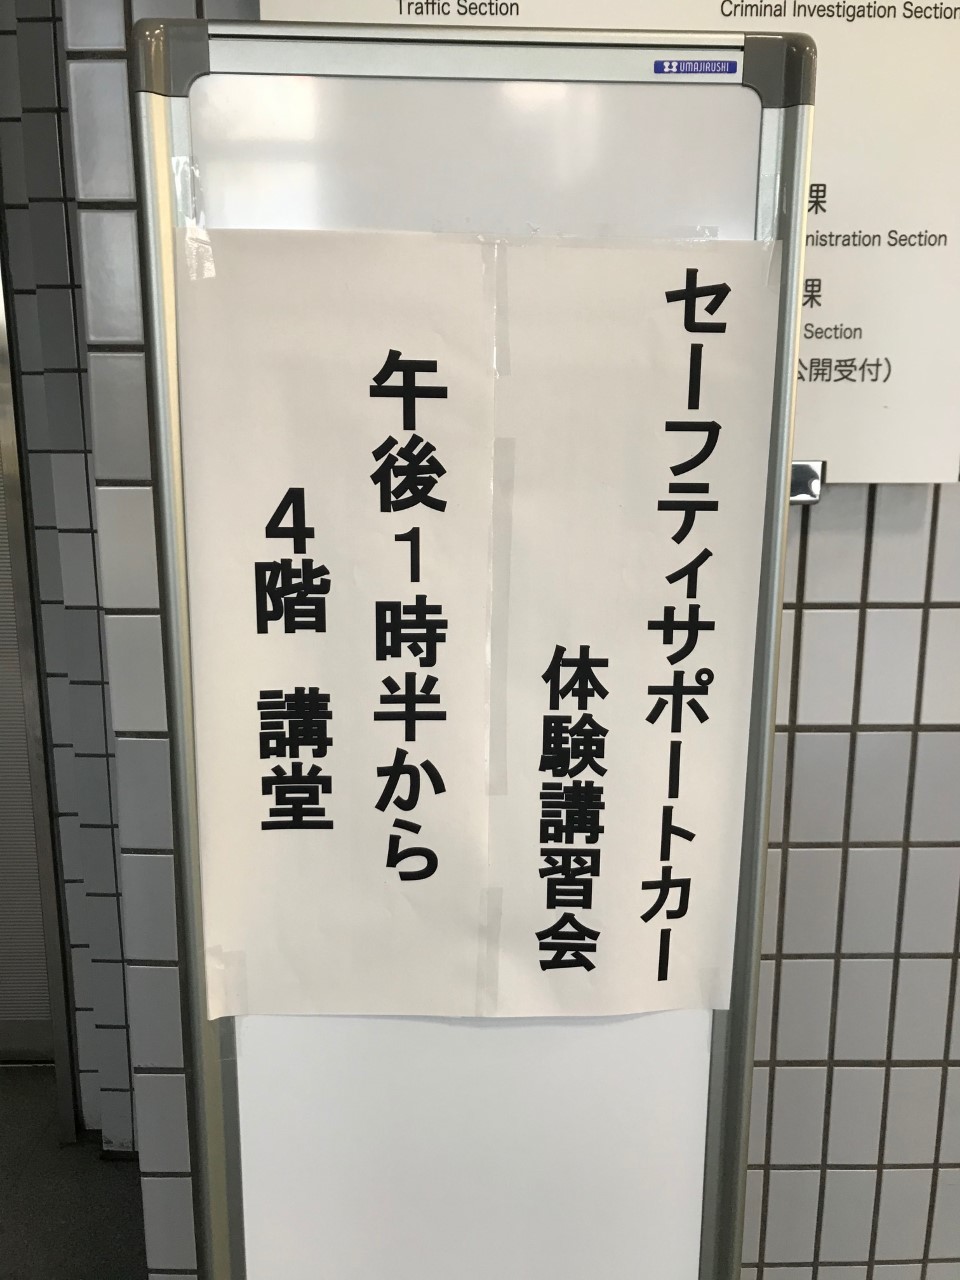 Traffic Section
Criminal Investigation Section
UMAJIRUSHI
課
nistration Section
課
Section
公開受付）
セーフティサポートカー
体験講習会
午後１時半から
４階　講堂